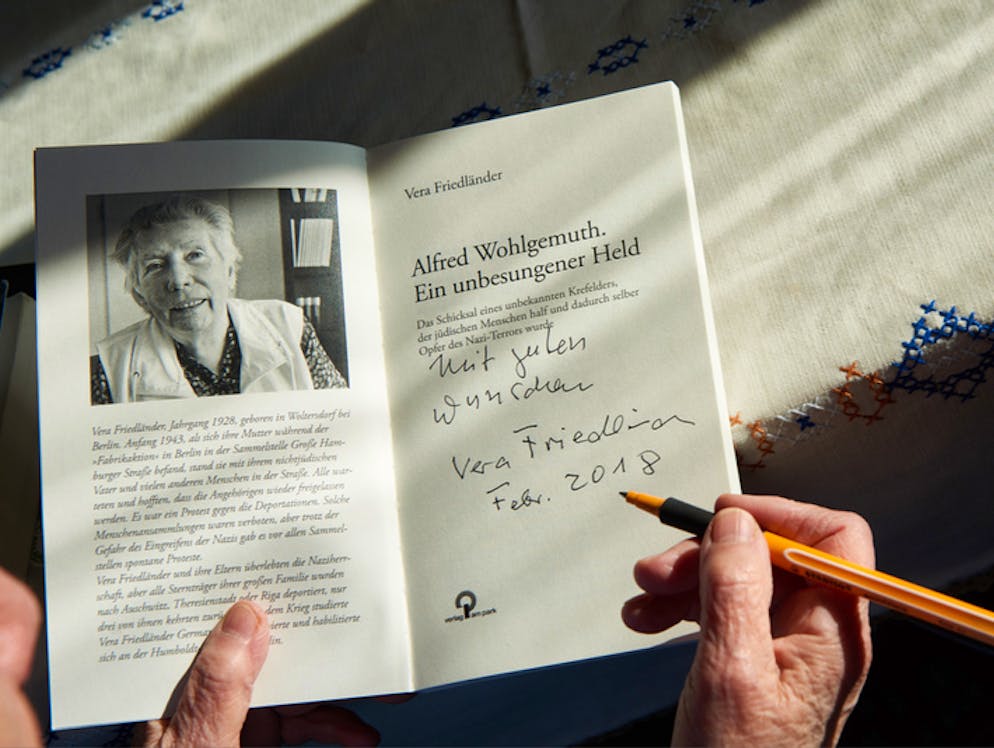 Vera Friedländer, Jahrgang 1928, geboren in Woltersdorf bei
Berlin. Anfang 1943, als sich ihre Mutter während der
»Fabrikaktion« in Berlin in der Sammelstelle Große Ham-
burger Straße befand, stand sie mit ihrem nichtjüdischen
Vater und vielen anderen Menschen in der Straße. Alle war-
teten und hofften, dass die Angehörigen wieder freigelassen
werden. Es war ein Protest gegen die Deportationen. Solche
Menschenansammlungen waren verboten, aber trotz der
Gefahr des Eingreifens der Nazis gab es vor allen Sammel-
stellen spontane Proteste.
Vera Friedländer und ihre Eltern überlebten die Naziherr-
schaft, aber alle Sternträger ihrer großen Familie wurden
nach Auschwitz, Theresienstadt oder Riga deportiert, nur
drei von ihnen kehrten dem Krieg studierte
Vera Friedländer und habilitierte
sich an der
Vera Friedländer
Alfred Wohlgemuth.
Ein unbesungener Held
Das Schicksal eines unbekannten Krefelders,
der jüdischen Menschen half und dadurch selber
Opfer des Nazi-Terrors wurde
Mit guten
Wünschen
Vera Friedländer
Febr. 2018
verlag am park